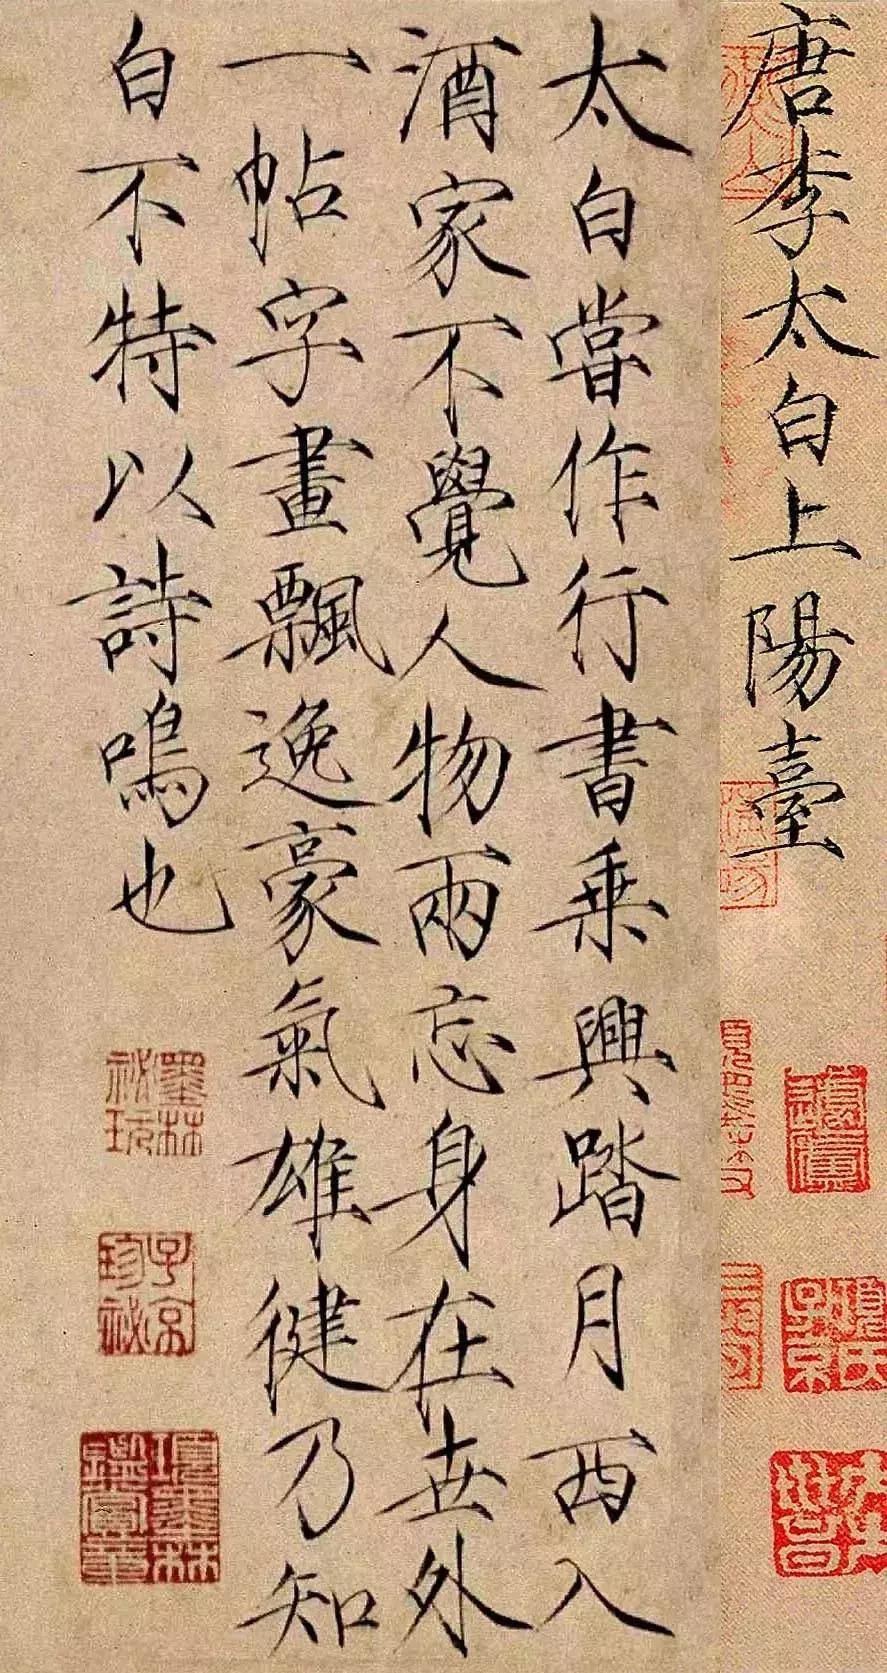 唐李太白上陽臺
太白嘗作行書乘興踏月西入
酒家不覺人物兩忘身在世外
一帖字畫飄逸豪氣雄徤乃知
白不特以詩鳴也
項氏子京
墨林祕玩
子京珍祕
項墨林鑑賞章